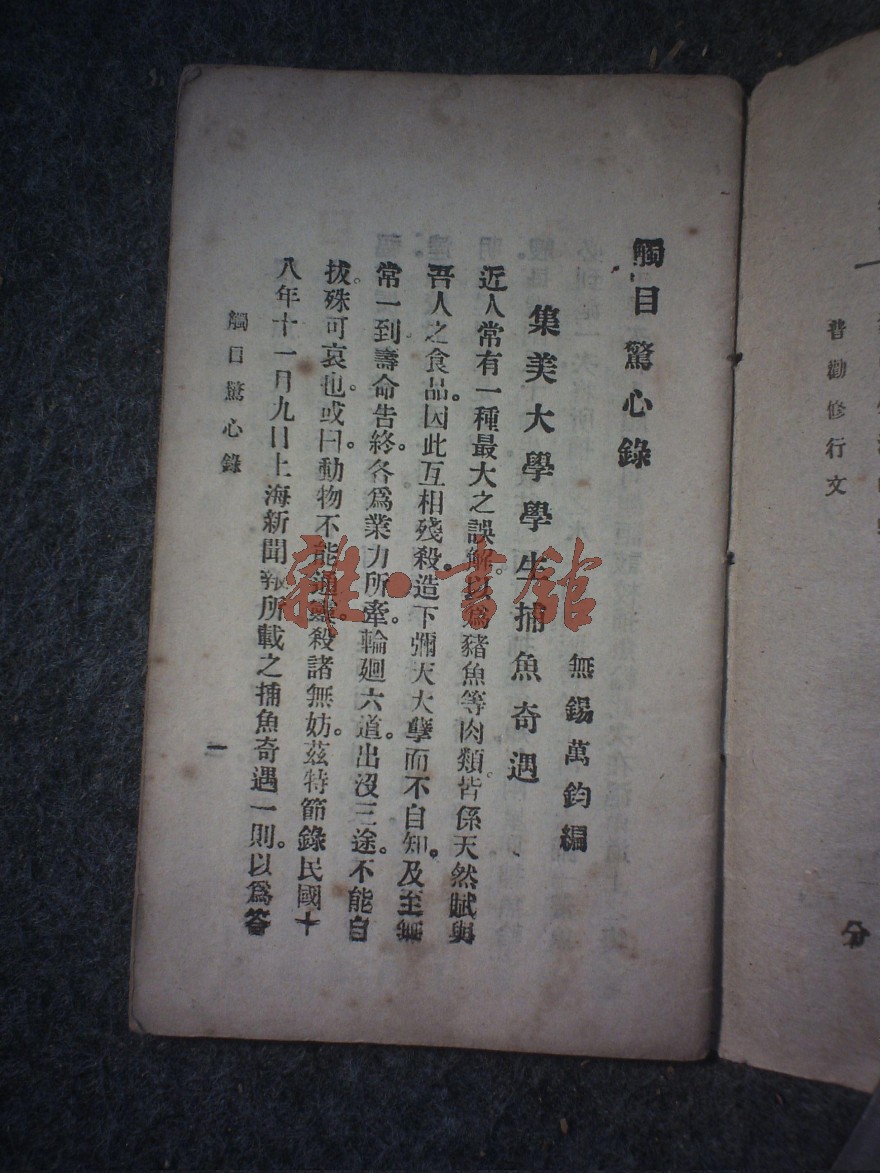 觸目驚心錄
無錫萬鈞編
集美大學學生捕魚奇遇
近人常有一種最大之誤解。以爲豬魚等肉類。皆係天然賦與
吾人之食品。因此互相殘殺。造下彌天大孽而不自知。及至無
常一到。壽命告終。各爲業力所牽。輪廻六道。出沒三途。不能自
拔。殊可哀也。或曰。動物不能通靈。殺諸無妨。茲特節錄民國十
八年十一月九日上海新聞報所載之捕魚奇遇一則。以爲答
觸目驚心錄
一
普勸修行文
分
雜·書館